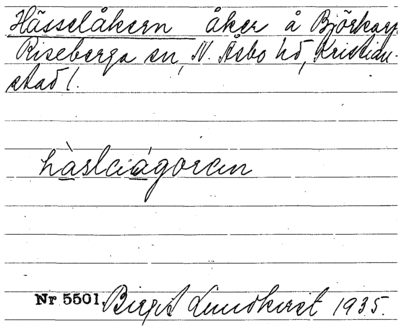 Hässelåkern åker å Björkarp
Riseberga sn, N. Åsbo hd, Kristian-
stad l.
hàslaiágoræn
Nr 5501. Birgit Lundkvist 1935.